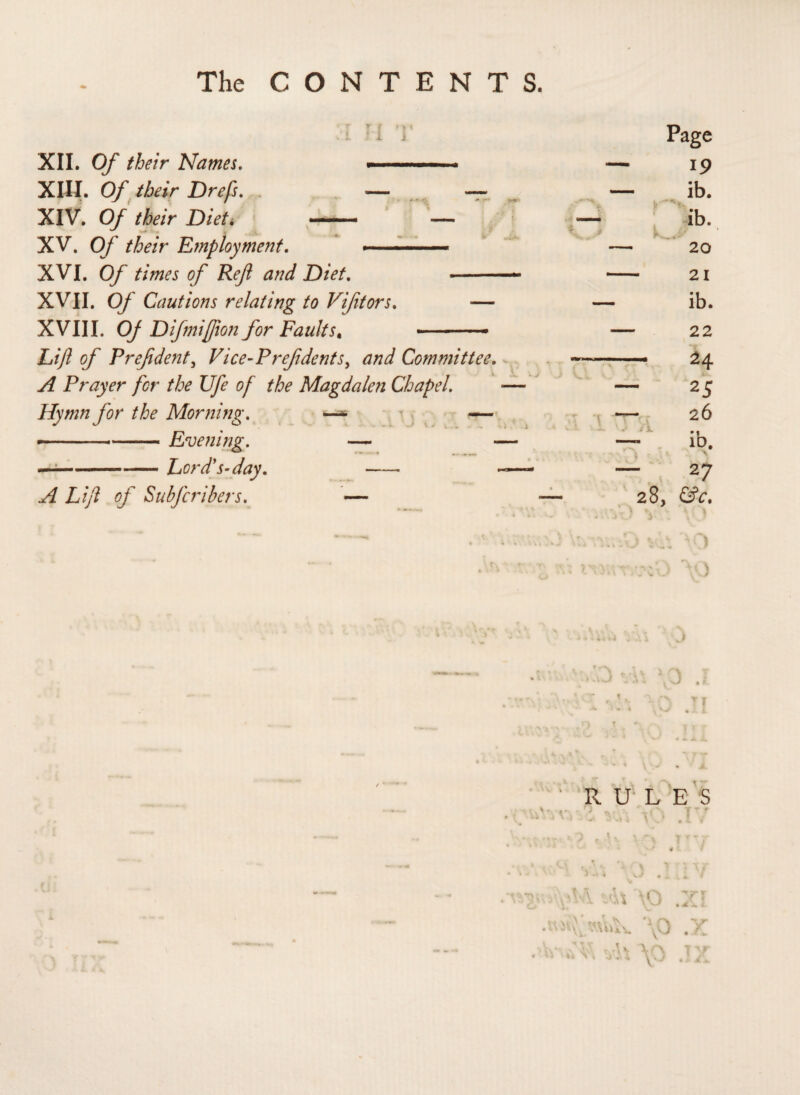 The CONTENTS.
Page
XII. Of their Names. — — 19
XIII. Of their Dreſs. — — — ib.
XIV. Of their Diet. — — — ib.
XV. Of their Employment. — — 20
XVI. Of times of Reſt and Diet. — — 21
XVII. Of Cautions relating to Viſitors. — — ib.
XVIII. Of Diſmiſſion for Faults. — — 22
Liſt of Preſident, Vice-Preſidents, and Committee. — 24
A Prayer for the Uſe of the Magdalen Chapel. — — 25
Hymn for the Morning. — — — 26
—— Evening. — — — ib.
—— Lord's-day. — — — 27
A Liſt of Subſcribers. — — 28, &c.
RULES